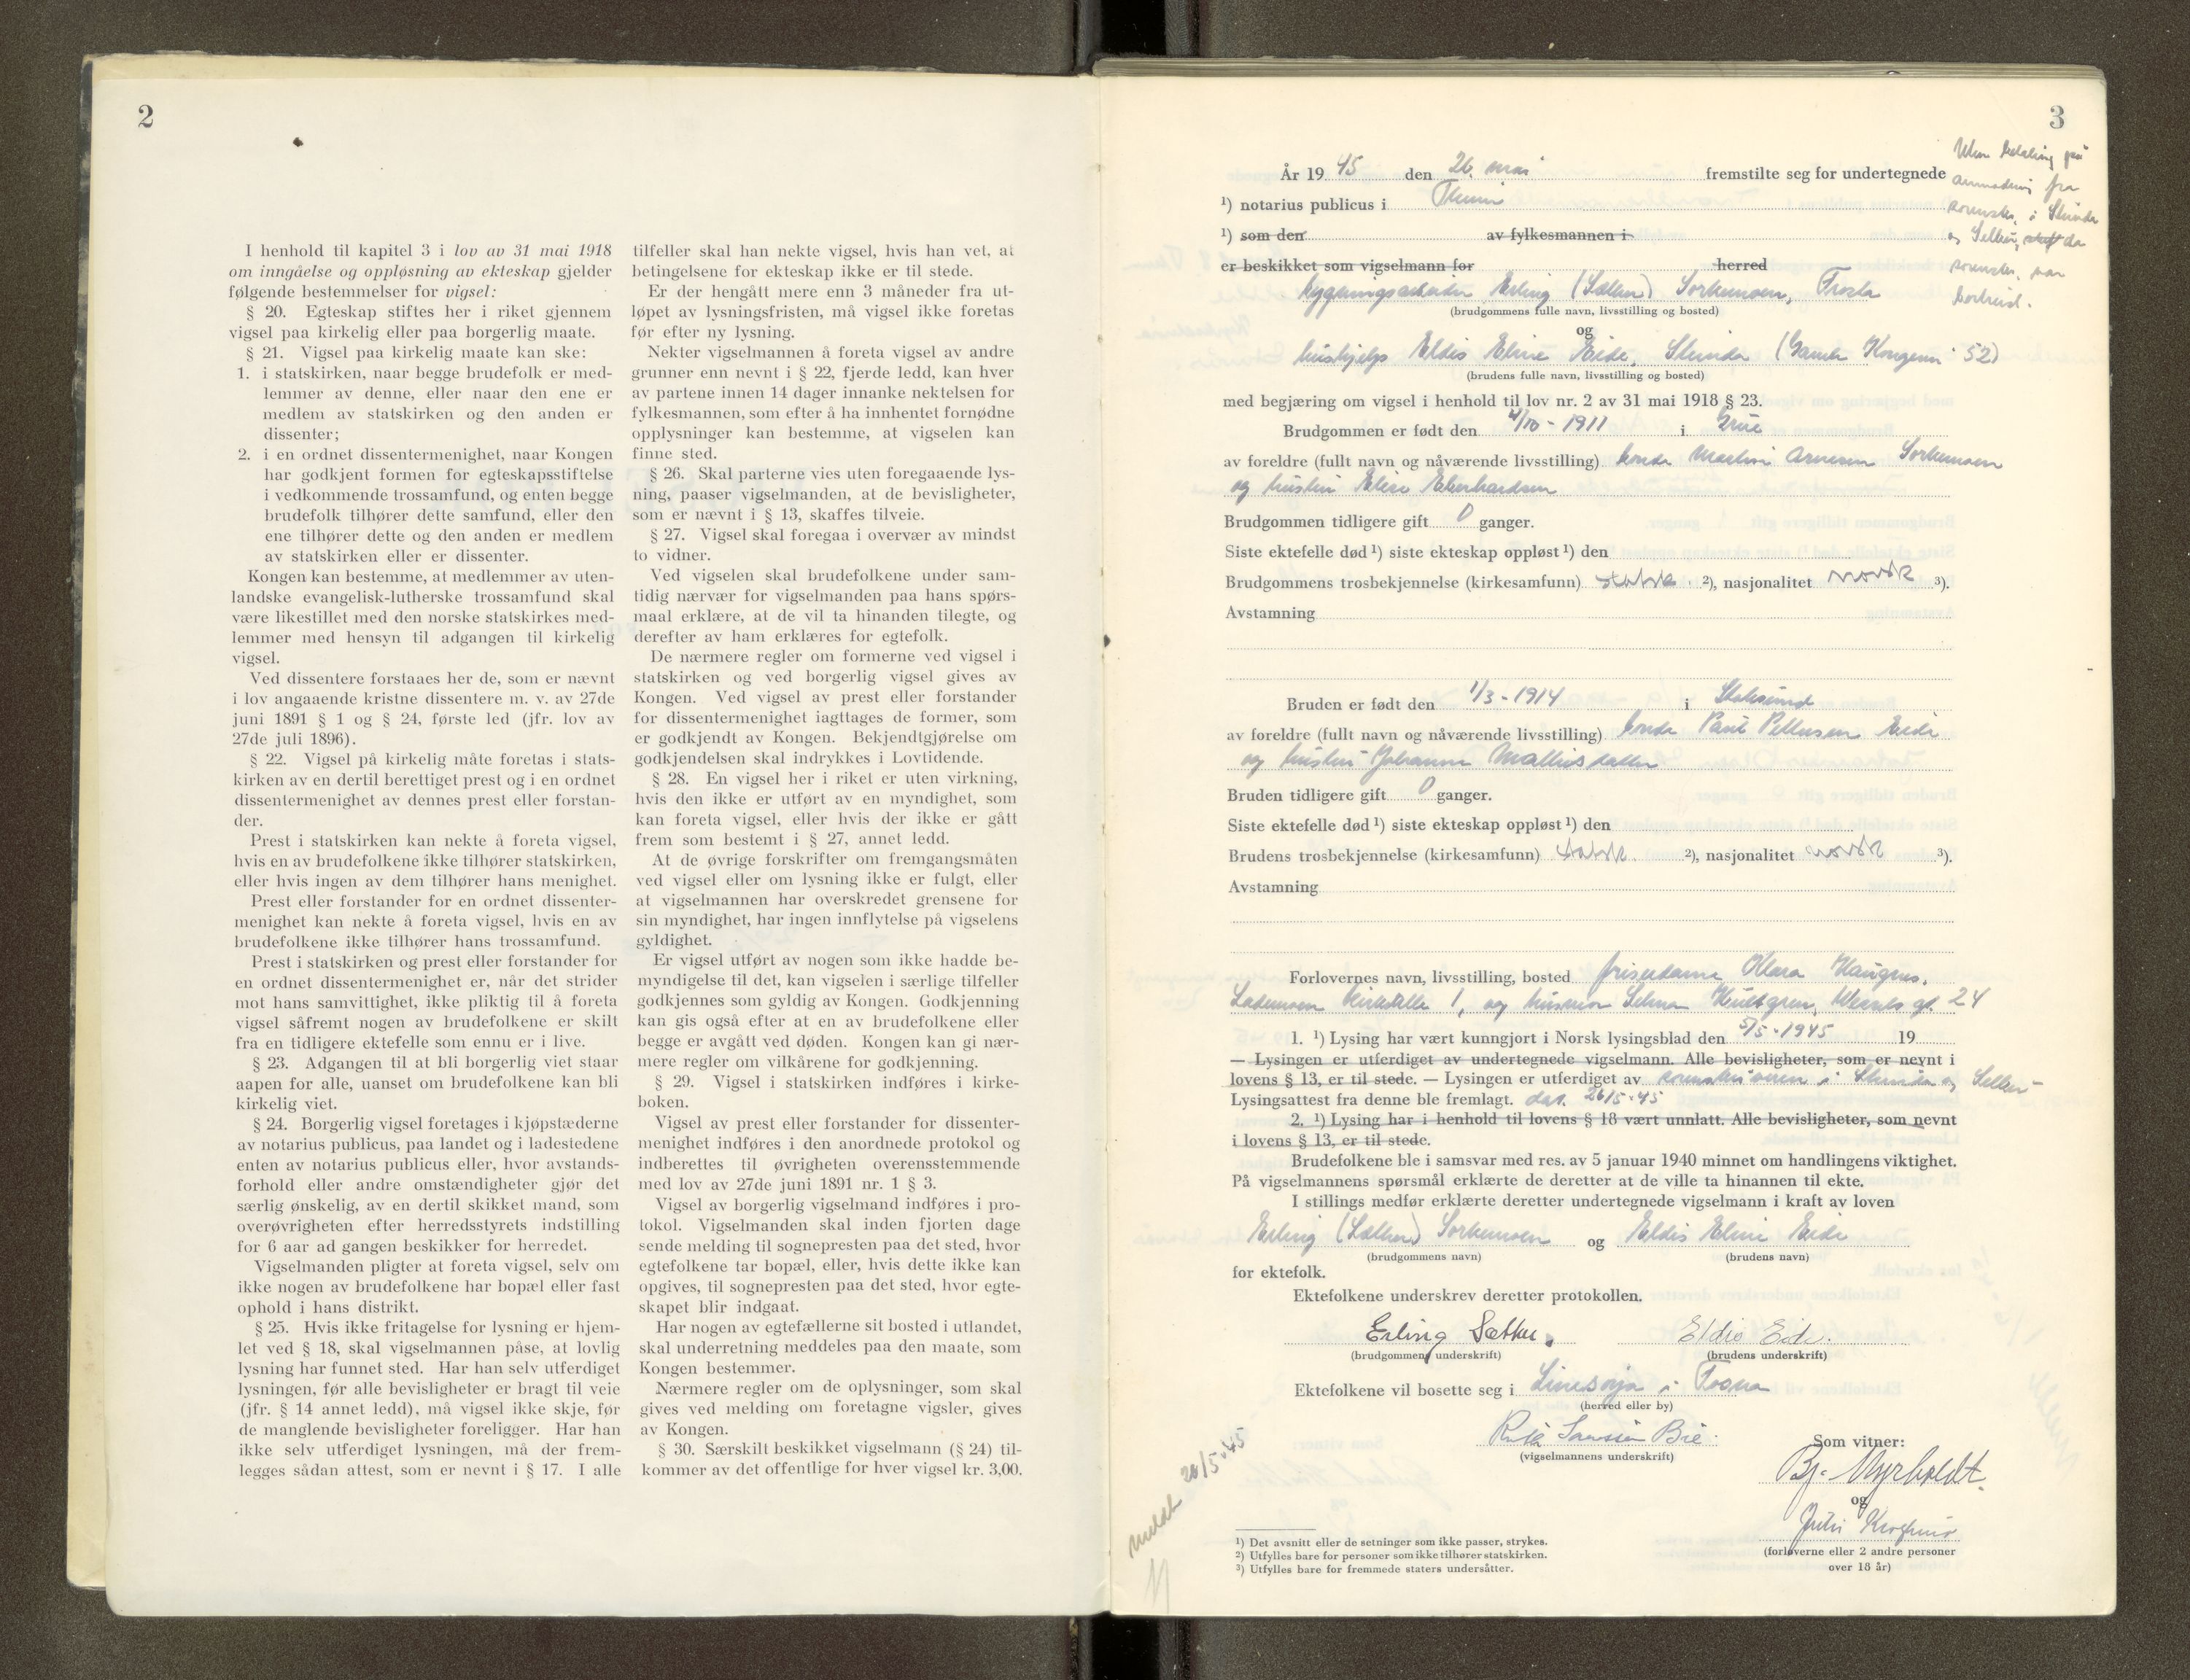 2
I henhold til kapitel 3 i lov av 31 mai 1918
om inngåelse og oppløsning av ekteskap gjelder
følgende bestemmelser for vigsel:
§ 20. Egteskap stiftes her i riket gjennem
vigsel paa kirkelig eller paa borgerlig maate.
§ 21. Vigsel paa kirkelig maate kan ske:
1. i statskirken, naar begge brudefolk er med-
lemmer av denne, eller naar den ene er
medlem av statskirken og den anden er
dissenter;
2. i en ordnet dissentermenighet, naar Kongen
har godkjent formen for egteskapsstiftelse
i vedkommende trossamfund, og enten begge
brudefolk tilhører dette samfund, eller den
ene tilhører dette og den anden er medlem
av statskirken eller er dissenter.
Kongen kan bestemme, at medlemmer av uten-
landske evangelisk-lutherske trossamfund skal
være likestillet med den norske statskirkes med-
lemmer med hensyn til adgangen til kirkelig
vigsel.
Ved dissentere forstaaes her de, som er nævnt
i lov angaaende kristne dissentere m. v. av 27de
juni 1891 § 1 og § 24, første led (jfr. lov av
27de juli 1896).
§ 22. Vigsel på kirkelig måte foretas i stats-
kirken av en dertil berettiget prest og i en ordnet
dissentermenighet av dennes prest eller forstan-
der.
Prest i statskirken kan nekte å foreta vigsel,
hvis en av brudefolkene ikke tilhører statskirken,
eller hvis ingen av dem tilhører hans menighet.
Prest eller forstander for en ordnet dissenter-
menighet kan nekte å foreta vigsel, hvis en av
brudefolkene ikke tilhører hans trossamfund.
Prest i statskirken og prest eller forstander for
en ordnet dissentermenighet er, når det strider
mot hans samvittighet, ikke pliktig til å foreta
vigsel såfremt nogen av brudefolkene er skilt
fra en tidligere ektefelle som ennu er i live.
§ 23. Adgangen til at bli borgerlig viet staar
aapen for alle, uanset om brudefolkene kan bli
kirkelig viet.
§ 24. Borgerlig vigsel foretages i kjøpstæderne
av notarius publicus, paa landet og i ladestedene
enten av notarius publicus eller, hvor avstands-
forhold eller andre omstændigheter gjør det
særlig ønskelig, av en dertil skikket mand, som
overøvrigheten efter herredsstyrets indstilling
for 6 aar ad gangen beskikker for herredet.
Vigselmanden pligter at foreta vigsel, selv om
ikke nogen av brudefolkene har bopæl eller fast
ophold i hans distrikt.
§ 25. Hvis ikke fritagelse for lysning er hjem-
let ved § 18, skal vigselmannen påse, at lovlig
lysning har funnet sted. Har han selv utferdiget
lysningen, før alle bevisligheter er bragt til veie
(jfr. § 14 annet ledd), må vigsel ikke skje, før
de manglende bevisligheter foreligger. Har han
ikke selv utferdiget lysningen, må der frem-
legges sådan attest, som er nevnt i § 17. I alle
tilfeller skal han nekte vigsel, hvis han vet, at
betingelsene for ekteskap ikke er til stede.
Er der hengått mere enn 3 måneder fra ut-
løpet av lysningsfristen, må vigsel ikke foretas
før efter ny lysning.
Nekter vigselmannen å foreta vigsel av andre
grunner enn nevnt i § 22, fjerde ledd, kan hver
av partene innen 14 dager innanke nektelsen for
fylkesmannen, som efter å ha innhentet fornødne
opplysninger kan bestemme, at vigselen kan
finne sted.
§ 26. Skal parterne vies uten foregaaende lys-
ning, paaser vigselmanden, at de bevisligheter,
som er nævnt i § 13, skaffes tilveie.
§ 27. Vigsel skal foregaa i overvær av mindst
to vidner.
Ved vigselen skal brudefolkene under sam-
tidig nærvær for vigselmanden paa hans spørs-
maal erklære, at de vil ta hinanden tilegte, og
derefter av ham erklæres for egtefolk.
De nærmere regler om formerne ved vigsel i
statskirken og ved borgerlig vigsel gives av
Kongen. Ved vigsel av prest eller forstander
for dissentermenighet iagttages de former, som
er godkjendt av Kongen. Bekjendtgjørelse om
godkjendelsen skal indrykkes i Lovtidende.
§ 28. En vigsel her i riket er uten virkning,
hvis den ikke er utført av en myndighet, som
kan foreta vigsel, eller hvis der ikke er gått
frem som bestemt i § 27, annet ledd.
At de øvrige forskrifter om fremgangsmåten
ved vigsel eller om lysning ikke er fulgt, eller
at vigselmannen har overskredet grensene for
sin myndighet, har ingen innflytelse på vigselens
gyldighet.
Er vigsel utført av nogen som ikke hadde be-
myndigelse til det, kan vigselen i særlige tilfeller
godkjennes som gyldig av Kongen. Godkjenning
kan gis også efter at en av brudefolkene eller
begge er avgått ved døden. Kongen kan gi nær-
mere regler om vilkårene for godkjenning.
§ 29. Vigsel i statskirken indføres i kirke-
boken.
Vigsel av prest eller forstander for dissenter-
menighet indføres i den anordnede protokol og
indberettes til øvrigheten overensstemmende
med lov av 27de juni 1891 nr. 1 § 3.
Vigsel av borgerlig vigselmand indføres i pro-
tokol. Vigselmanden skal inden fjorten dage
sende melding til sognepresten paa det sted, hvor
egtefolkene tar bopæl, eller, hvis dette ikke kan
opgives, til sognepresten paa det sted, hvor egte-
skapet blir indgaat.
Har nogen av egtefællerne sit bosted i utlandet,
skal underretning meddeles paa den maate, som
Kongen bestemmer.
Nærmere regler om de oplysninger, som skal
gives ved melding om foretagne vigsler, gives
av Kongen.
§ 30. Særskilt beskikket vigselmann (§ 24) til-
kommer av det offentlige for hver vigsel kr. 3,00.
3
Uten betaling på
anmodning fra
sorenskr. i Strinda
og Selbu, da
sorenskr. var
bortreist.
År 1945 den 26. mai fremstilte seg for undertegnede
1) notarius publicus i Thmn
1) som den av fylkesmannen i
er beskikket som vigselmann for herred
bygningsarbeider Erling (Sæther) Sorkmoen, Frosta
(brudgommens fulle navn, livsstilling og bosted)
og
hushjelp Eldis Eline Eide, Strinda (Gamle Kongevei 52)
(brudens fulle navn, livsstilling og bosted)
med begjæring om vigsel i henhold til lov nr. 2 av 31 mai 1918 § 23.
Brudgommen er født den 4/10 - 1911 i Grue
av foreldre (fullt navn og nåværende livsstilling) bonde Martin Arnesen Sorkmoen
og hustru Elise Eberhardsen
Brudgommen tidligere gift 0 ganger.
Siste ektefelle død 1) siste ekteskap oppløst 1) den
Brudgommens trosbekjennelse (kirkesamfunn) statsk. 2), nasjonalitet norsk 3).
Avstamning
Bruden er født den 1/3 - 1914 i Stoksund
av foreldre (fullt navn og nåværende livsstilling) bonde Paul Pettersen Eide
og hustru Johanna Mathisdatter
Bruden tidligere gift 0 ganger.
Siste ektefelle død 1) siste ekteskap oppløst 1) den
Brudens trosbekjennelse (kirkesamfunn) statsk. 2), nasjonalitet norsk 3).
Avstamning
Forlovernes navn, livsstilling, bosted friserdame Klara Haugnes,
Lademoen kirkeallé 1, og husmor Selma Hultgren, Wessels gt. 24
1. 1) Lysing har vært kunngjort i Norsk lysingsblad den 5/5 - 1945 19
— Lysingen er utferdiget av undertegnede vigselmann. Alle bevisligheter, som er nevnt i
lovens § 13, er til stede. — Lysingen er utferdiget av sorenskriveren i Strinda og Selbu —
Lysingsattest fra denne ble fremlagt. dat. 26/5-45
2. 1) Lysing har i henhold til lovens § 18 vært unnlatt. Alle bevisligheter, som nevnt
i lovens § 13, er til stede.
Brudefolkene ble i samsvar med res. av 5 januar 1940 minnet om handlingens viktighet.
På vigselmannens spørsmål erklærte de deretter at de ville ta hinannen til ekte.
I stillings medfør erklærte deretter undertegnede vigselmann i kraft av loven
Erling (Sæther) Sorkmoen og Eldis Eline Eide
(brudgommens navn) (brudens navn)
for ektefolk.
Ektefolkene underskrev deretter protokollen.
Erling Sæther. Eldis Eide.
(brudgommens underskrift) (brudens underskrift)
Ektefolkene vil bosette seg i Linesøya i
(herred eller by)
Bie
(vigselmannens underskrift)
Som vitner:
Bj. Myrholdt.
og
(forloverne eller 2 andre personer
over 18 år)
meldt 26/5-45
1) Det avsnitt eller de setninger som ikke passer, strykes.
2) Utfylles bare for personer som ikke tilhører statskirken.
3) Utfylles bare for fremmede staters undersåtter.